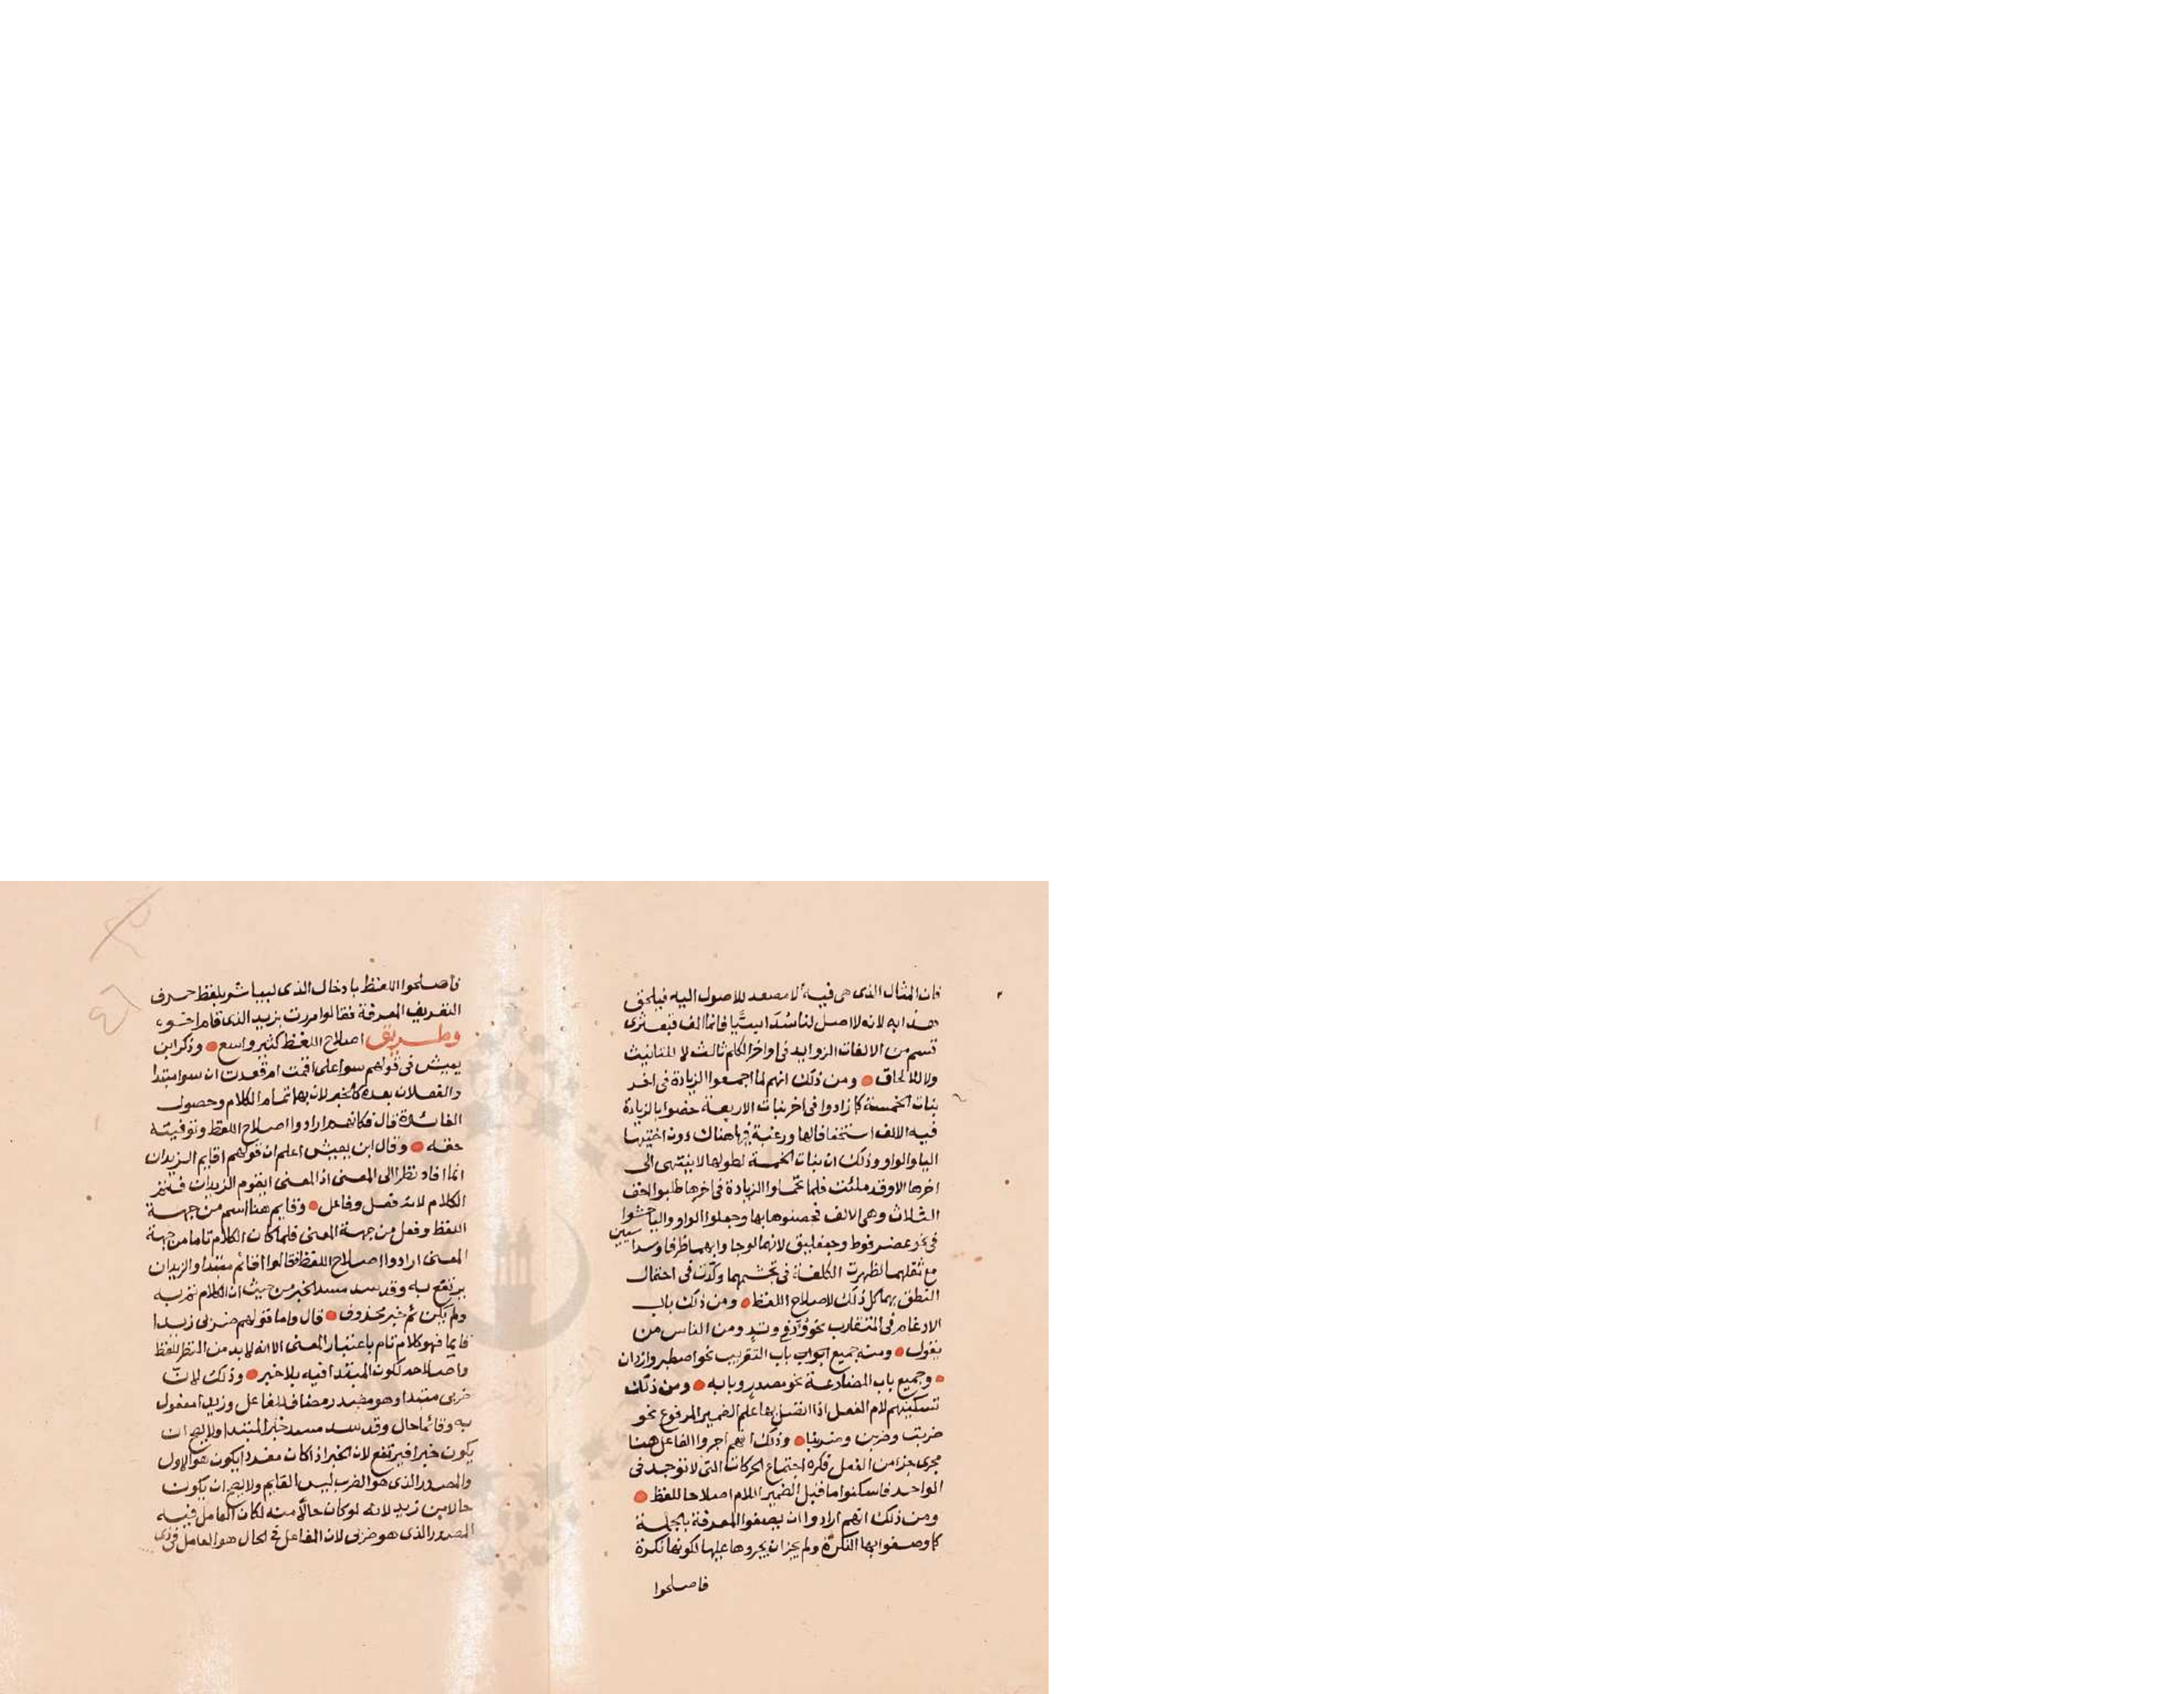 فان المثال الذى هى فيه لا مصعد للاصول اليه فيلحق
هذا به لانه لا اصل لنا سداسيا فانما الف قبعثرى
قسم من الالفات الزوايد فى اواخر الكلم ثالث لا للتانيث
ولا للالحاق ومن ذلك انهم لما اجمعوا الزيادة فى اخر
بنات الخمسة كما زادوا فى اخر بنات الاربعة خصوا بالزيادة
فيه الالف استخفافا لها ورغبة فيها هناك دون اختيها
اليا والواو وذلك ان بنات الخمسة لطولها لا ينتهى الى
اخرها الا وقد ملئت فلما تحملوا الزيادة فى اخرها طلبوا اخف
الثلاث وهى الالف فخصوها بها وجعلوا الواو واليا حشوا
فى نحو عضرفوط وجعفليق لانهما لو جا وا بهما طرفا وسداسيين
مع ثقلهما لظهرت الكلفة فى تجشمهما وكدت فى احتمال
النطق بهما كل ذلك لاصلاح اللفظ ومن ذلك باب
الادغام فى المتقارب نحو ود فى وتد ومن الناس من
يقول ومنه جميع ابواب باب التقريب نحو اصطبر وازدان
وجميع باب المضارعة نحو مصدر وبابه ومن ذلك
تسكينهم لام الفعل اذا اتصل بها علم الضمير المرفوع نحو
ضربت وضربن وضربنا وذلك انهم اجروا الفاعل هنا
مجرى جزء من الفعل فكره اجتماع الحركات التى لا توجد فى
الواحد فاسكنوا ما قبل الضمير اللام اصلاحا للفظ
ومن ذلك انهم ارادوا ان يصفوا المعرفة بالجملة
كما وصفوا بها النكرة ولم يجز ان يجروها عليها لكونها نكرة
فاصلحوا
فاصلحوا اللفظ بادخال الذى ليباشر بلفظ حرف
التعريف المعرفة فقالوا مررت بزيد الذى قام اخوه
وطريق اصلاح اللفظ كثير واسع وذكر ابن
يعيش فى قولهم سوا على اقمت ام قعدت ان سوا مبتدا
والفعلان بعده كالخبر لان بهما تمام الكلام وحصول
الفائدة قال فكانهم ارادوا اصلاح اللفظ وتوفيته
حقه وقال ابن يعيش اعلم ان قولهم اقايم الزيدان
انما افاد نظرا الى المعنى اذ المعنى ايقوم الزيدان فتم
الكلام لانه فعل وفاعل وقايم هنا اسم من جهة
اللفظ وفعل من جهة المعنى فلما كان الكلام تاما من جهة
المعنى ارادوا اصلاح اللفظ فقالوا اقائم مبتدا والزيدان
يرتفع به وقد سد مسد الخبر من حيث ان الكلام تم به
ولم يكن ثم خبر محذوف قال واما قولهم ضربى زيدا
قايما فهو كلام تام باعتبار المعنى الا انه لا بد من النظر للفظ
واصلاحه لكون المبتدا فيه بلا خبر وذلك لان
ضربى مبتدا وهو مصدر مضاف للفاعل وزيدا مفعول
به وقائما حال وقد سد مسد خبر المبتدا ولا يصح ان
يكون خبرا فيرتفع لان الخبر اذا كان مفردا يكون هو الاول
والمصدر الذى هو الضرب ليس القايم ولا يصح ان يكون
حالا من زيد لانه لو كان حالا منه لكان العامل فيه
المصدر الذى هو ضربى لان الفاعل فى الحال هو العامل فى ذى